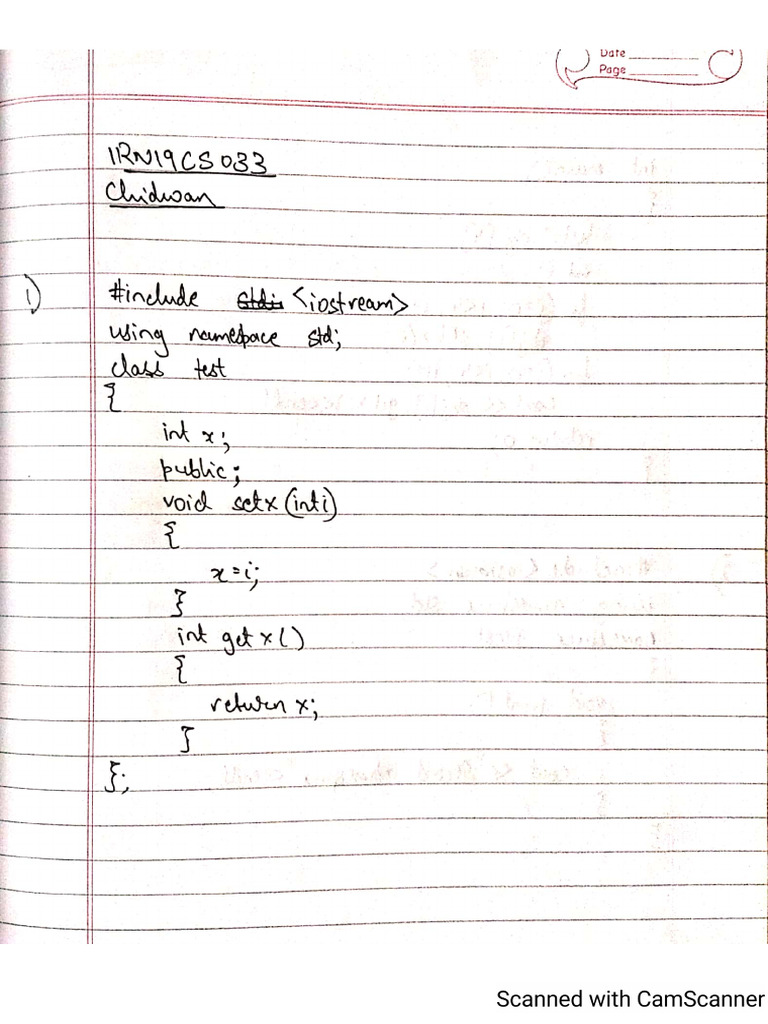 Date
Page
1RN19CS033
Chidwan
1) #include <iostream>
using namespace std;
class test
{
int x;
public;
void setx (int i)
{
x=i;
}
int getx()
{
return x;
}
};
Scanned with CamScanner